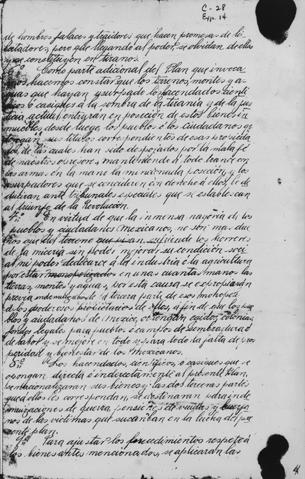 C-28
Exp. 14
de hombres falaces y traidores que hacen promesas de li-
bertadores, pero que llegando al poder, se olvidan de ellas
y se constituyen en tiranos.
Como parte adicional del Plan que invoca
mos, hacemos constar que los terrenos, montes y a-
guas que hayan usurpado los hacendados, cientí
ficos o caciques a la sombra de la tiranía y de la jus
ticia entrarán en posesión de estos bienes in
muebles desde luego, los pueblos o los ciudadanos que
tengan sus títulos correspondientes de esas propieda
des de las cuales han sido despojados por la mala fé
de nuestros opresores, manteniendo a todo trance con
las armas en la mano la mencionada posesión y los
usurpadores que se consideren con derecho a ellos, lo de
ducirán ante tribunales especiales que se establezcan
al triunfo de la Revolución.
7º En virtud de que la inmensa mayoría de los
pueblos y ciudadanos Mexicanos, no son mas due
ños que del terreno que pisan, sufriendo los horrores
de la miseria sin poder mejorar su condición soci
al ni poder dedicarse a la industria o a la agricultura
por estar monopolizados en unas cuantas manos las
tierras, montes y aguas, por esta causa se expropiarán
previa indemnización de la tercera parte de esos monopolios
a los poderosos propietarios de ellas, a fin de que los pue
blos y ciudadanos de México, obtengan ejidos, colonias,
fundos legales para pueblos o campos de sembradura o
de labor y se mejore en todo y para todo la falta de pros
peridad y bienestar de los Mexicanos.
8º Los hacendados, científicos o caciques que se
opongan directa o indirectamente al presente Plan,
se nacionalizarán sus bienes y las dos terceras partes
que a ellos les correspondan, se destinarán para inde
mnizaciones de guerra, pensiones de viudas y huérfa
nos de las víctimas que sucumban en la lucha del pre
sente plan.
9º Para ajustar los procedimientos respecto a
los bienes antes mencionados, se aplicarán las